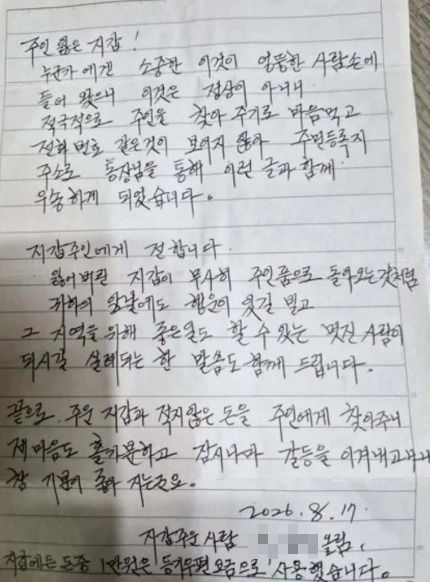 주인 잃은 지갑!
누군가에겐 소중한 이것이 엉뚱한 사람손에
들어 왔으니 이것은 정상이 아니니
적극적으로 주인을 찾아 주기로 마음먹고
전화번호 같은것이 보이지 않아 주민등록지
주소로 통장님을 통해 이런 글과 함께
우송하게 되었습니다.
지갑주인에게 전합니다.
잃어버린 지갑이 무사히 주인품으로 돌아오는것처럼
귀하의 앞날에도 행운이 있길 빌고
그 지역을 위해 좋은일도 할 수 있는 멋진 사람이
되시길 살려되는 한 말씀도 함께 드립니다.
끝으로. 주운 지갑과 적지않은 돈을 주인에게 찾아주니
제 마음도 홀가분하고 잠시나마 갈등을 이겨내고나니
참 기분이 좋아 지는군요.
2026. 8. 17
지갑주운 사람 올림.
지갑에든 돈중 1만원은 등기우편 요금으로 사용했습니다.